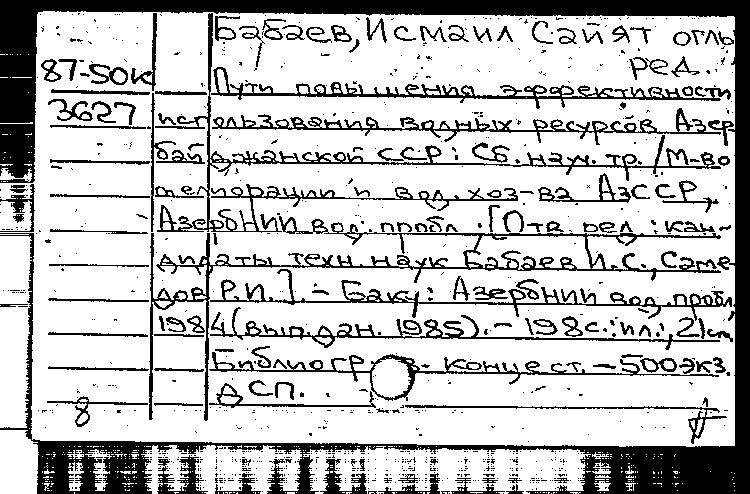 Бабаев, Исмаил Сайят оглы
ред.
87-50к
Пути повышения эффективности
3627 использования водных ресурсов Азер
байджанской ССР: Сб. науч. тр. / М-во
мелиорации и вод. хоз-ва АзССР,
АзербНИИ вод. пробл.; [Отв. ред.: кан-
дидаты техн. наук Бабаев И.С., Саме-
дов Р.И.]. - Баку: АзербНИИ вод. пробл,
1984 (вып. дан. 1985). - 198 с.: ил.; 21 см
Библиогр. в конце ст. - 500 экз.
ДСП.
8